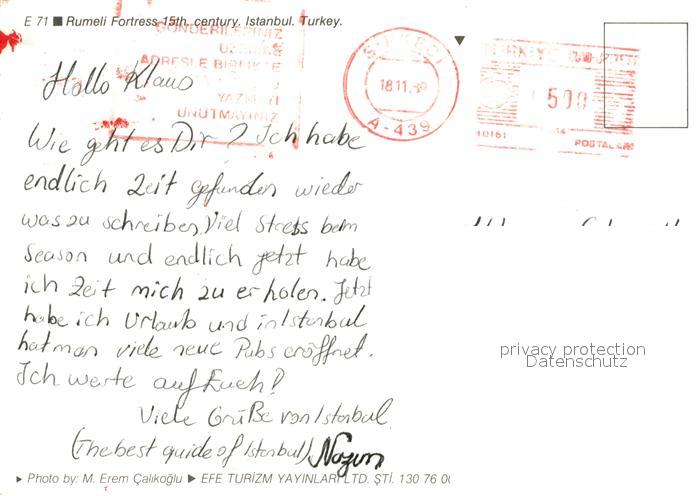 E 71 ■ Rumeli Fortress 15th. century. Istanbul. Turkey.
GÖNDERİLERİNİZ
ADRESLE BİRLİKTE
YAZMAYI
UNUTMAYINIZ
SİRKECİ
18.11.
A-439
TÜRKİYE
500
10161
POSTALARI
Hallo Klaus
Wie geht es Dir? Ich habe
endlich Zeit gefunden wieder
was zu schreiben. Viel Stress beim
Season und endlich jetzt habe
ich Zeit mich zu erholen. Jetzt
habe ich Urlaub und in Istanbul
hat man viele neue Pubs eröffnet.
Ich warte auf Euch!
Viele Grüße von Istanbul
(The best guide of Istanbul) Nazım
privacy protection
Datenschutz
▶ Photo by: M. Erem Çalıkoğlu ▶ EFE TURİZM YAYINLARI LTD. ŞTİ. 130 76 00